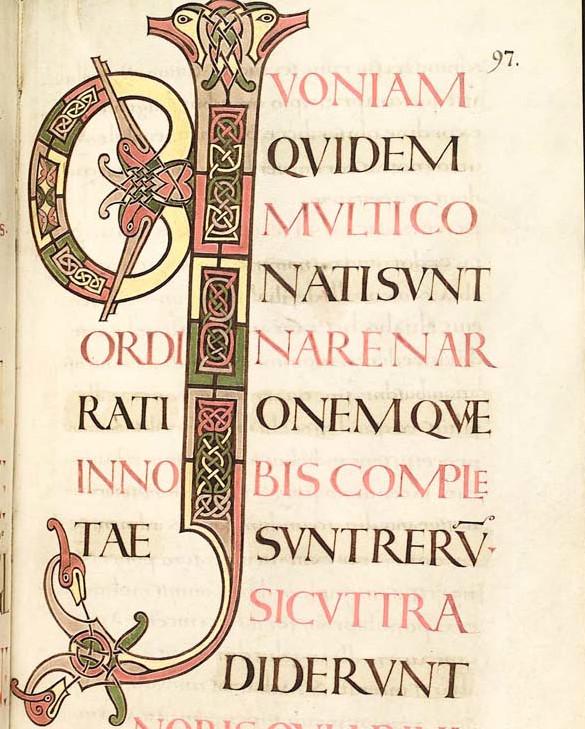 97.
QVONIAM
QVIDEM
MVLTI CO
NATI SVNT
ORDINARE NAR
RATIONEMQVE
IN NOBIS COMPLE
TAE SVNT RERV̄·
SICVT TRA
DIDERVNT